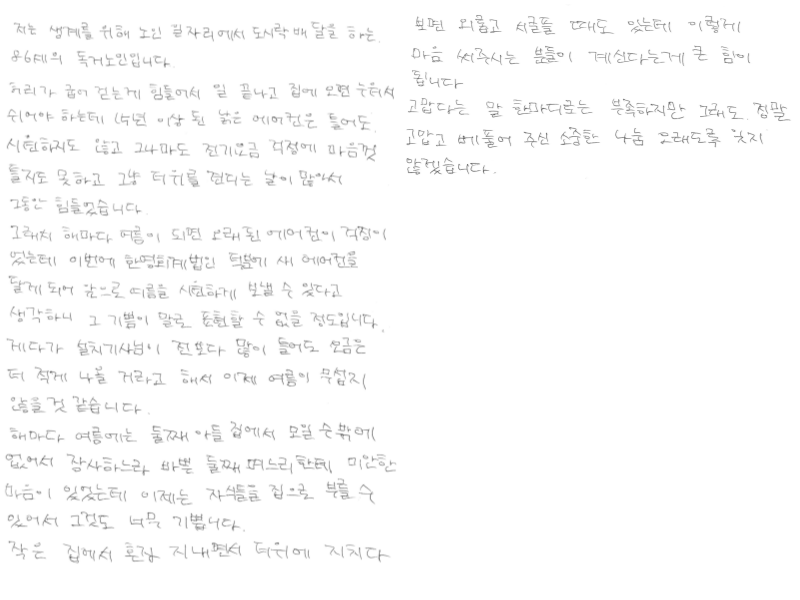 저는 생계를 위해 노인 일자리에서 도시락 배달을 하는
86세의 독거노인입니다.
허리가 굽어 걷는게 힘들어서 일 끝나고 집에 오면 누워서
쉬어야 하는데 15년 이상 된 낡은 에어컨은 틀어도
시원하지도 않고 그나마도 전기요금 걱정에 마음껏
틀지도 못하고 그냥 더위를 견디는 날이 많아서
그동안 힘들었습니다.
그래서 해마다 여름이 되면 오래된 에어컨이 걱정이
었는데 이번에 한영회계법인 덕분에 새 에어컨을
달게 되어 앞으로 여름을 시원하게 보낼 수 있다고
생각하니 그 기쁨이 말로 표현할 수 없을 정도입니다.
게다가 설치기사님이 전보다 많이 틀어도 요금은
더 적게 나올 거라고 해서 이제 여름이 무섭지
않을 것 같습니다.
해마다 여름에는 둘째 아들 집에서 모일 수밖에
없어서 장사하느라 바쁜 둘째 며느리한테 미안한
마음이 있었는데 이제는 자식들을 집으로 부를 수
있어서 그것도 너무 기쁩니다.
작은 집에서 혼자 지내면서 더위에 지치다
보면 외롭고 서글플 때도 있는데 이렇게
마음 써주시는 분들이 계신다는게 큰 힘이
됩니다
고맙다는 말 한마디로는 부족하지만 그래도 정말
고맙고 베풀어 주신 소중한 나눔 오래도록 잊지
않겠습니다.